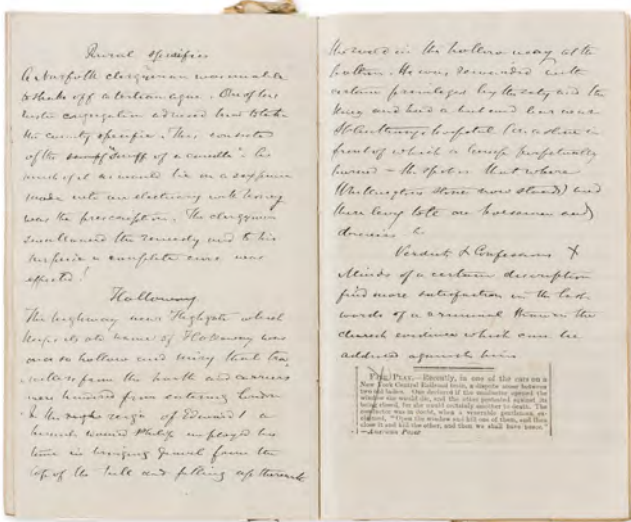 Rural specifics
A Norfolk clergyman was unable
to shake off a tertian ague. One of his
rustic congregation advised him to take
the county specific. This consisted
of the snuff "snuff of a candle". As
much of it as would lie on a sixpence
made into an electuary with honey
was the prescription. The clergyman
swallowed the remedy and to his
surprise a complete cure was
effected!
Holloway
The highway near Highgate which
keeps its old name of Holloway was
once so hollow and miry that tra
vellers from the north and carriers
were hindered from entering London
In the reign of Edward I a
hermit named Philip employed his
time in bringing gravel from the
top of the hill and filling up therewith
the road in the hollow way at the
bottom. He was rewarded with
certain privileges by the city and the
King and had a hut and box near
St Anthony's hospital (in a shrine in
front of which a lamp perpetually
burned – the spot is that where
Whittington's stone now stands) and
there levy toll on horsemen and
drovers &c
Verdicts & Confessions X
Minds of a certain description
find more satisfaction in the last
words of a criminal than in the
clearest evidence which can be
adduced against him
FAIR PLAY.—Recently, in one of the cars on a
New York Central Railroad train, a dispute arose between
two old ladies. One declared if the conductor opened the
window she would die, and the other protested against its
being closed, for she would certainly smother to death. The
conductor was in doubt, when a venerable gentleman ex-
claimed, "Open the window and kill one of them, and then
close it and kill the other, and then we shall have peace."